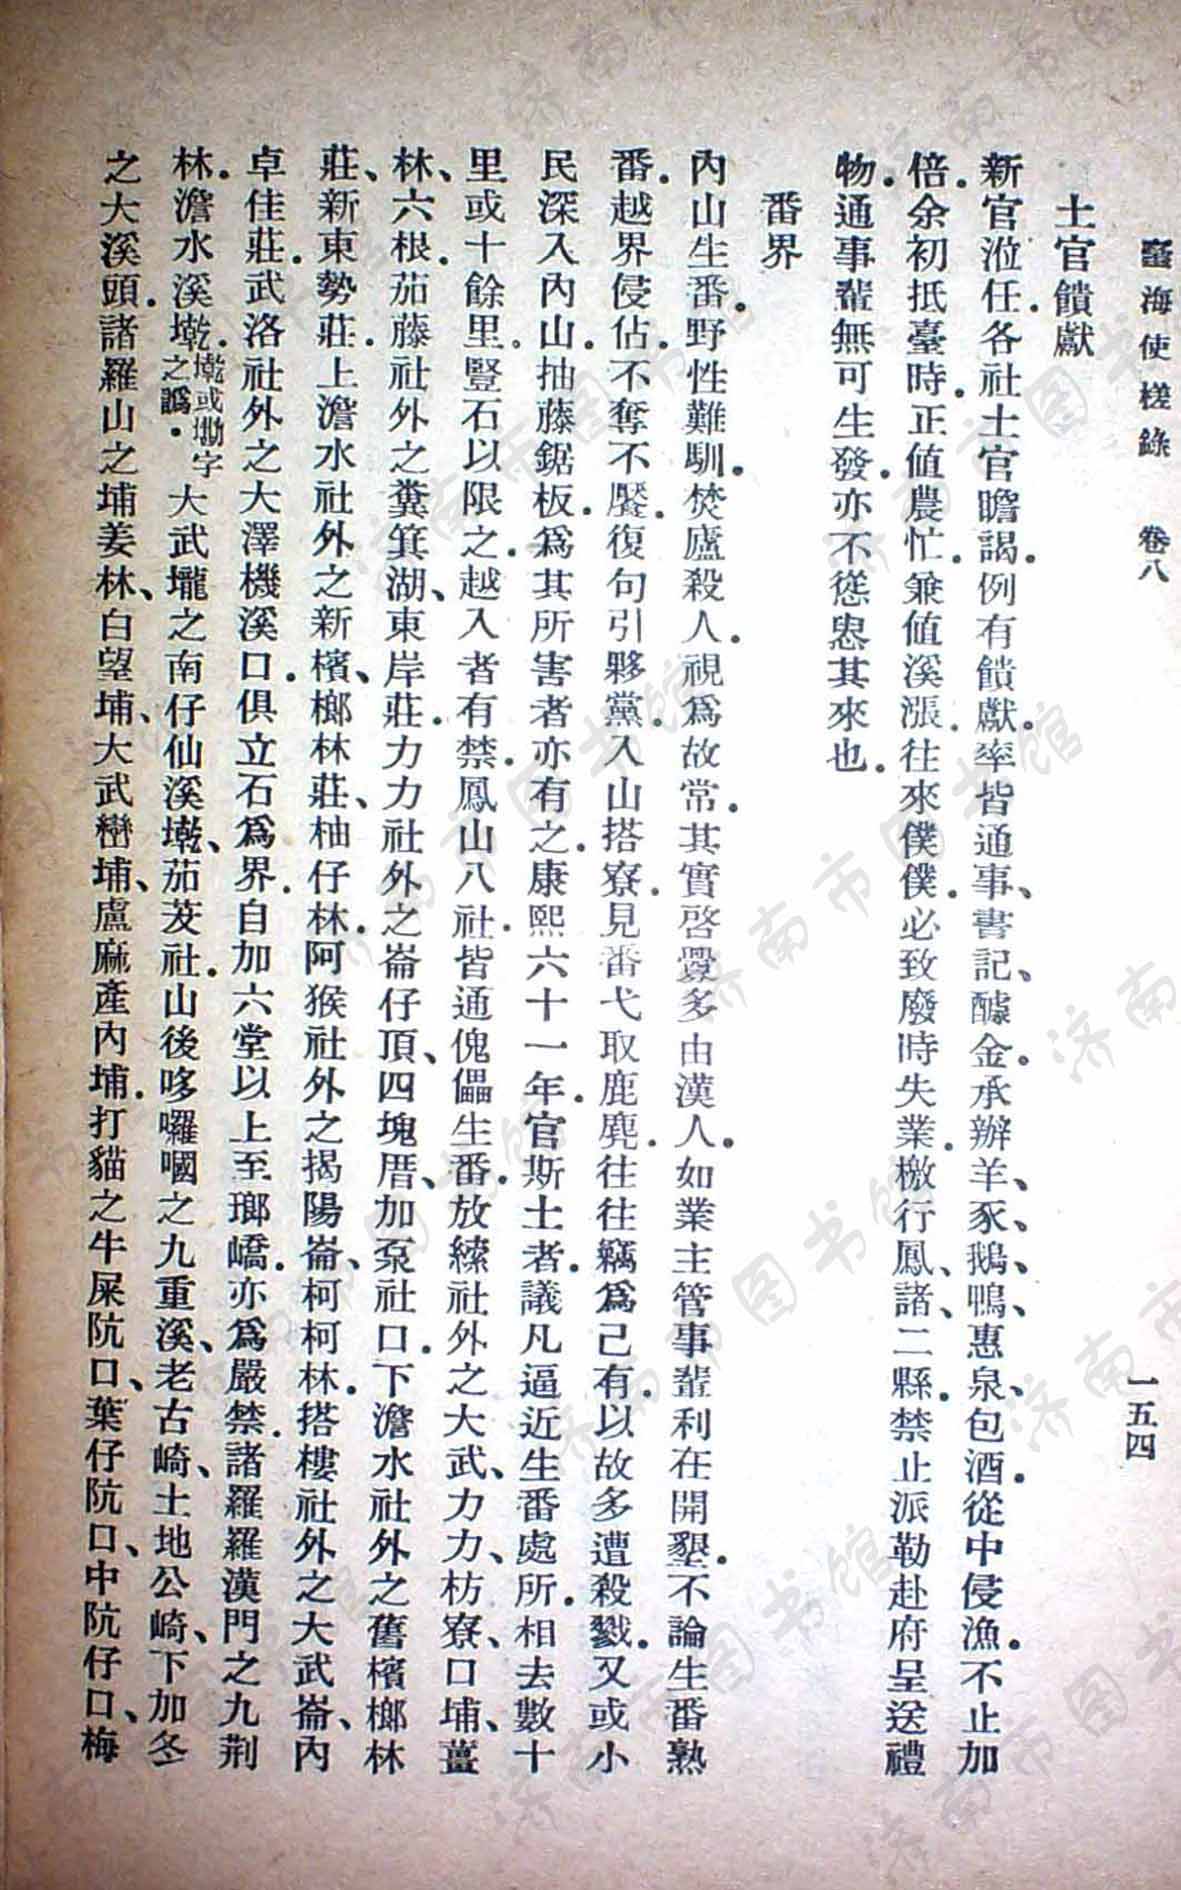 臺海使槎錄　卷八　一五四
土官饋獻
新官涖任.各社土官瞻謁.例有饋獻.率皆通事、書記、醵金.承辦羊、豕、鵝、鴨、惠泉、包酒.從中侵漁.不止加
倍.余初抵臺時.正値農忙.兼値溪漲.往來僕僕.必致廢時失業.檄行鳳、諸、二縣.禁止派勒赴府呈送禮
物.通事輩無可生發.亦不慫恿其來也.
番界
內山生番.野性難馴.焚廬殺人.視爲故常.其實啓釁多由漢人.如業主管事輩利在開墾.不論生番熟
番.越界侵佔.不奪不饜.復句引夥黨.入山搭寮.見番弋取鹿麂.往往竊爲己有.以故多遭殺戮.又或小
民深入內山.抽藤鋸板.爲其所害者亦有之.康熙六十一年.官斯土者.議凡逼近生番處所.相去數十
里或十餘里.豎石以限之.越入者有禁.鳳山八社.皆通傀儡生番.放縤社外之大武、力力、枋寮、口埔、薑
林、六根.茄藤社外之糞箕湖、東岸莊.力力社外之崙仔頂、四塊厝、加泵社口.下澹水社外之舊檳榔林
莊、新東勢莊.上澹水社外之新檳、榔林莊、柚仔林.阿猴社外之揭陽崙、柯柯林.搭樓社外之大武崙、內
卓佳莊.武洛社外之大澤機溪口.俱立石爲界.自加六堂以上至瑯嶠.亦爲嚴禁.諸羅羅漢門之九荆
林.澹水溪墘.墘或墈字之譌.大武壠之南仔仙溪墘、茄茇社.山後哆囉嘓之九重溪、老古崎、土地公崎、下加冬
之大溪頭.諸羅山之埔姜林、白望埔、大武巒埔、盧麻產內埔.打貓之牛屎阬口、葉仔阬口、中阬仔口、梅